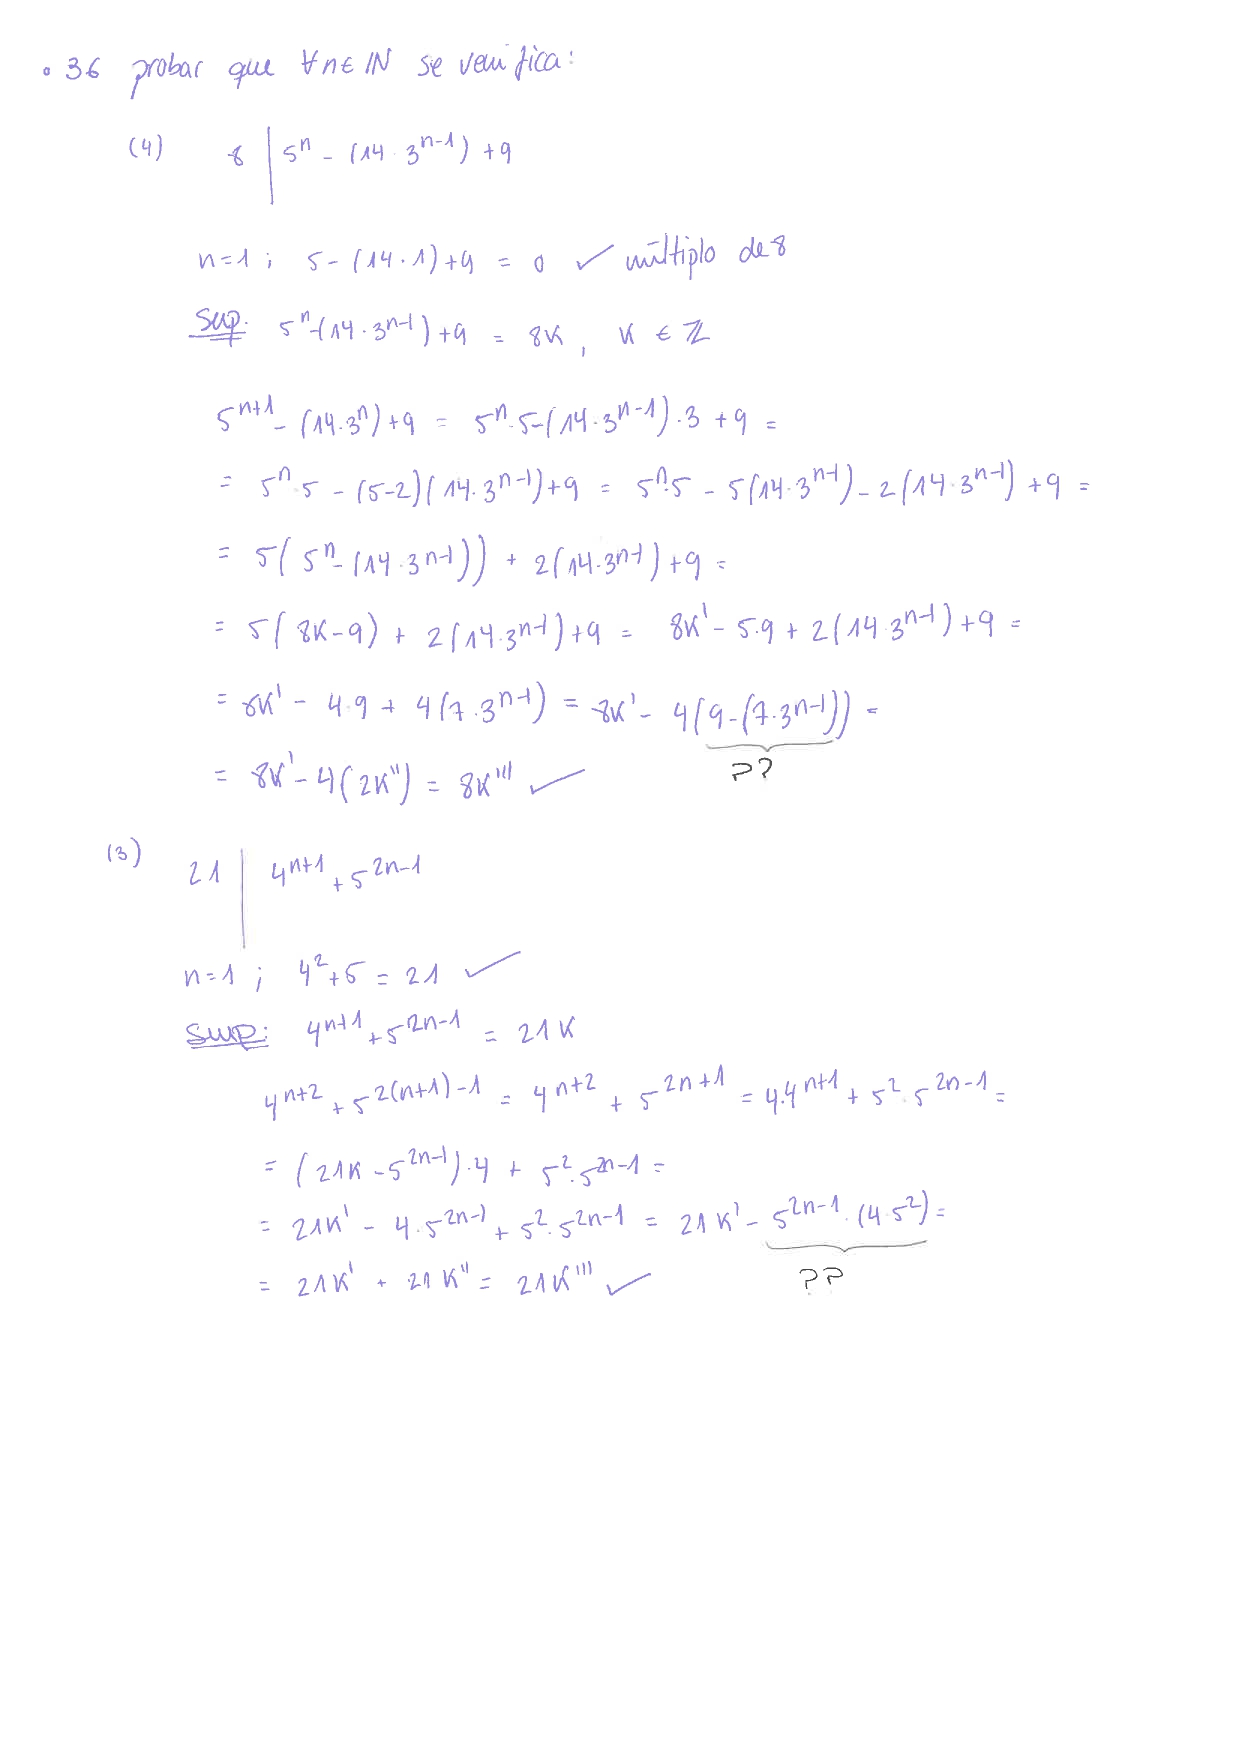 • 36 probar que ∀n∈ℕ se verifica:
(4) 8 | 5^n - (14·3^{n-1}) + 9
n=1 ; 5-(14·1)+9 = 0 ✓ múltiplo de 8
Sup: 5^n-(14·3^{n-1})+9 = 8K , K ∈ ℤ
5^{n+1} - (14·3^n)+9 = 5^n·5-(14·3^{n-1})·3 + 9 =
= 5^n·5 - (5-2)(14·3^{n-1})+9 = 5^n·5 - 5(14·3^{n-1}) - 2(14·3^{n-1}) + 9 =
= 5(5^n-(14·3^{n-1})) + 2(14·3^{n-1}) + 9 =
= 5(8K-9) + 2(14·3^{n-1})+9 = 8K' - 5·9 + 2(14·3^{n-1})+9 =
= 8K' - 4·9 + 4(7·3^{n-1}) = 8K' - 4(9-(7·3^{n-1})) =
??
= 8K' - 4(2K'') = 8K''' ✓
(3) 21 | 4^{n+1} + 5^{2n-1}
n=1 ; 4^2+5 = 21 ✓
Sup: 4^{n+1} + 5^{2n-1} = 21K
4^{n+2} + 5^{2(n+1)-1} = 4^{n+2} + 5^{2n+1} = 4·4^{n+1} + 5^2·5^{2n-1} =
= (21K - 5^{2n-1})·4 + 5^2·5^{2n-1} =
= 21K' - 4·5^{2n-1} + 5^2·5^{2n-1} = 21K' - 5^{2n-1}·(4·5^2) =
??
= 21K' + 21K'' = 21K''' ✓